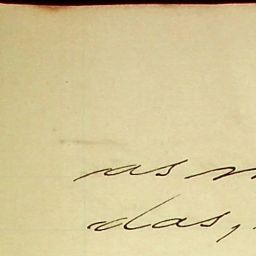 as
das,